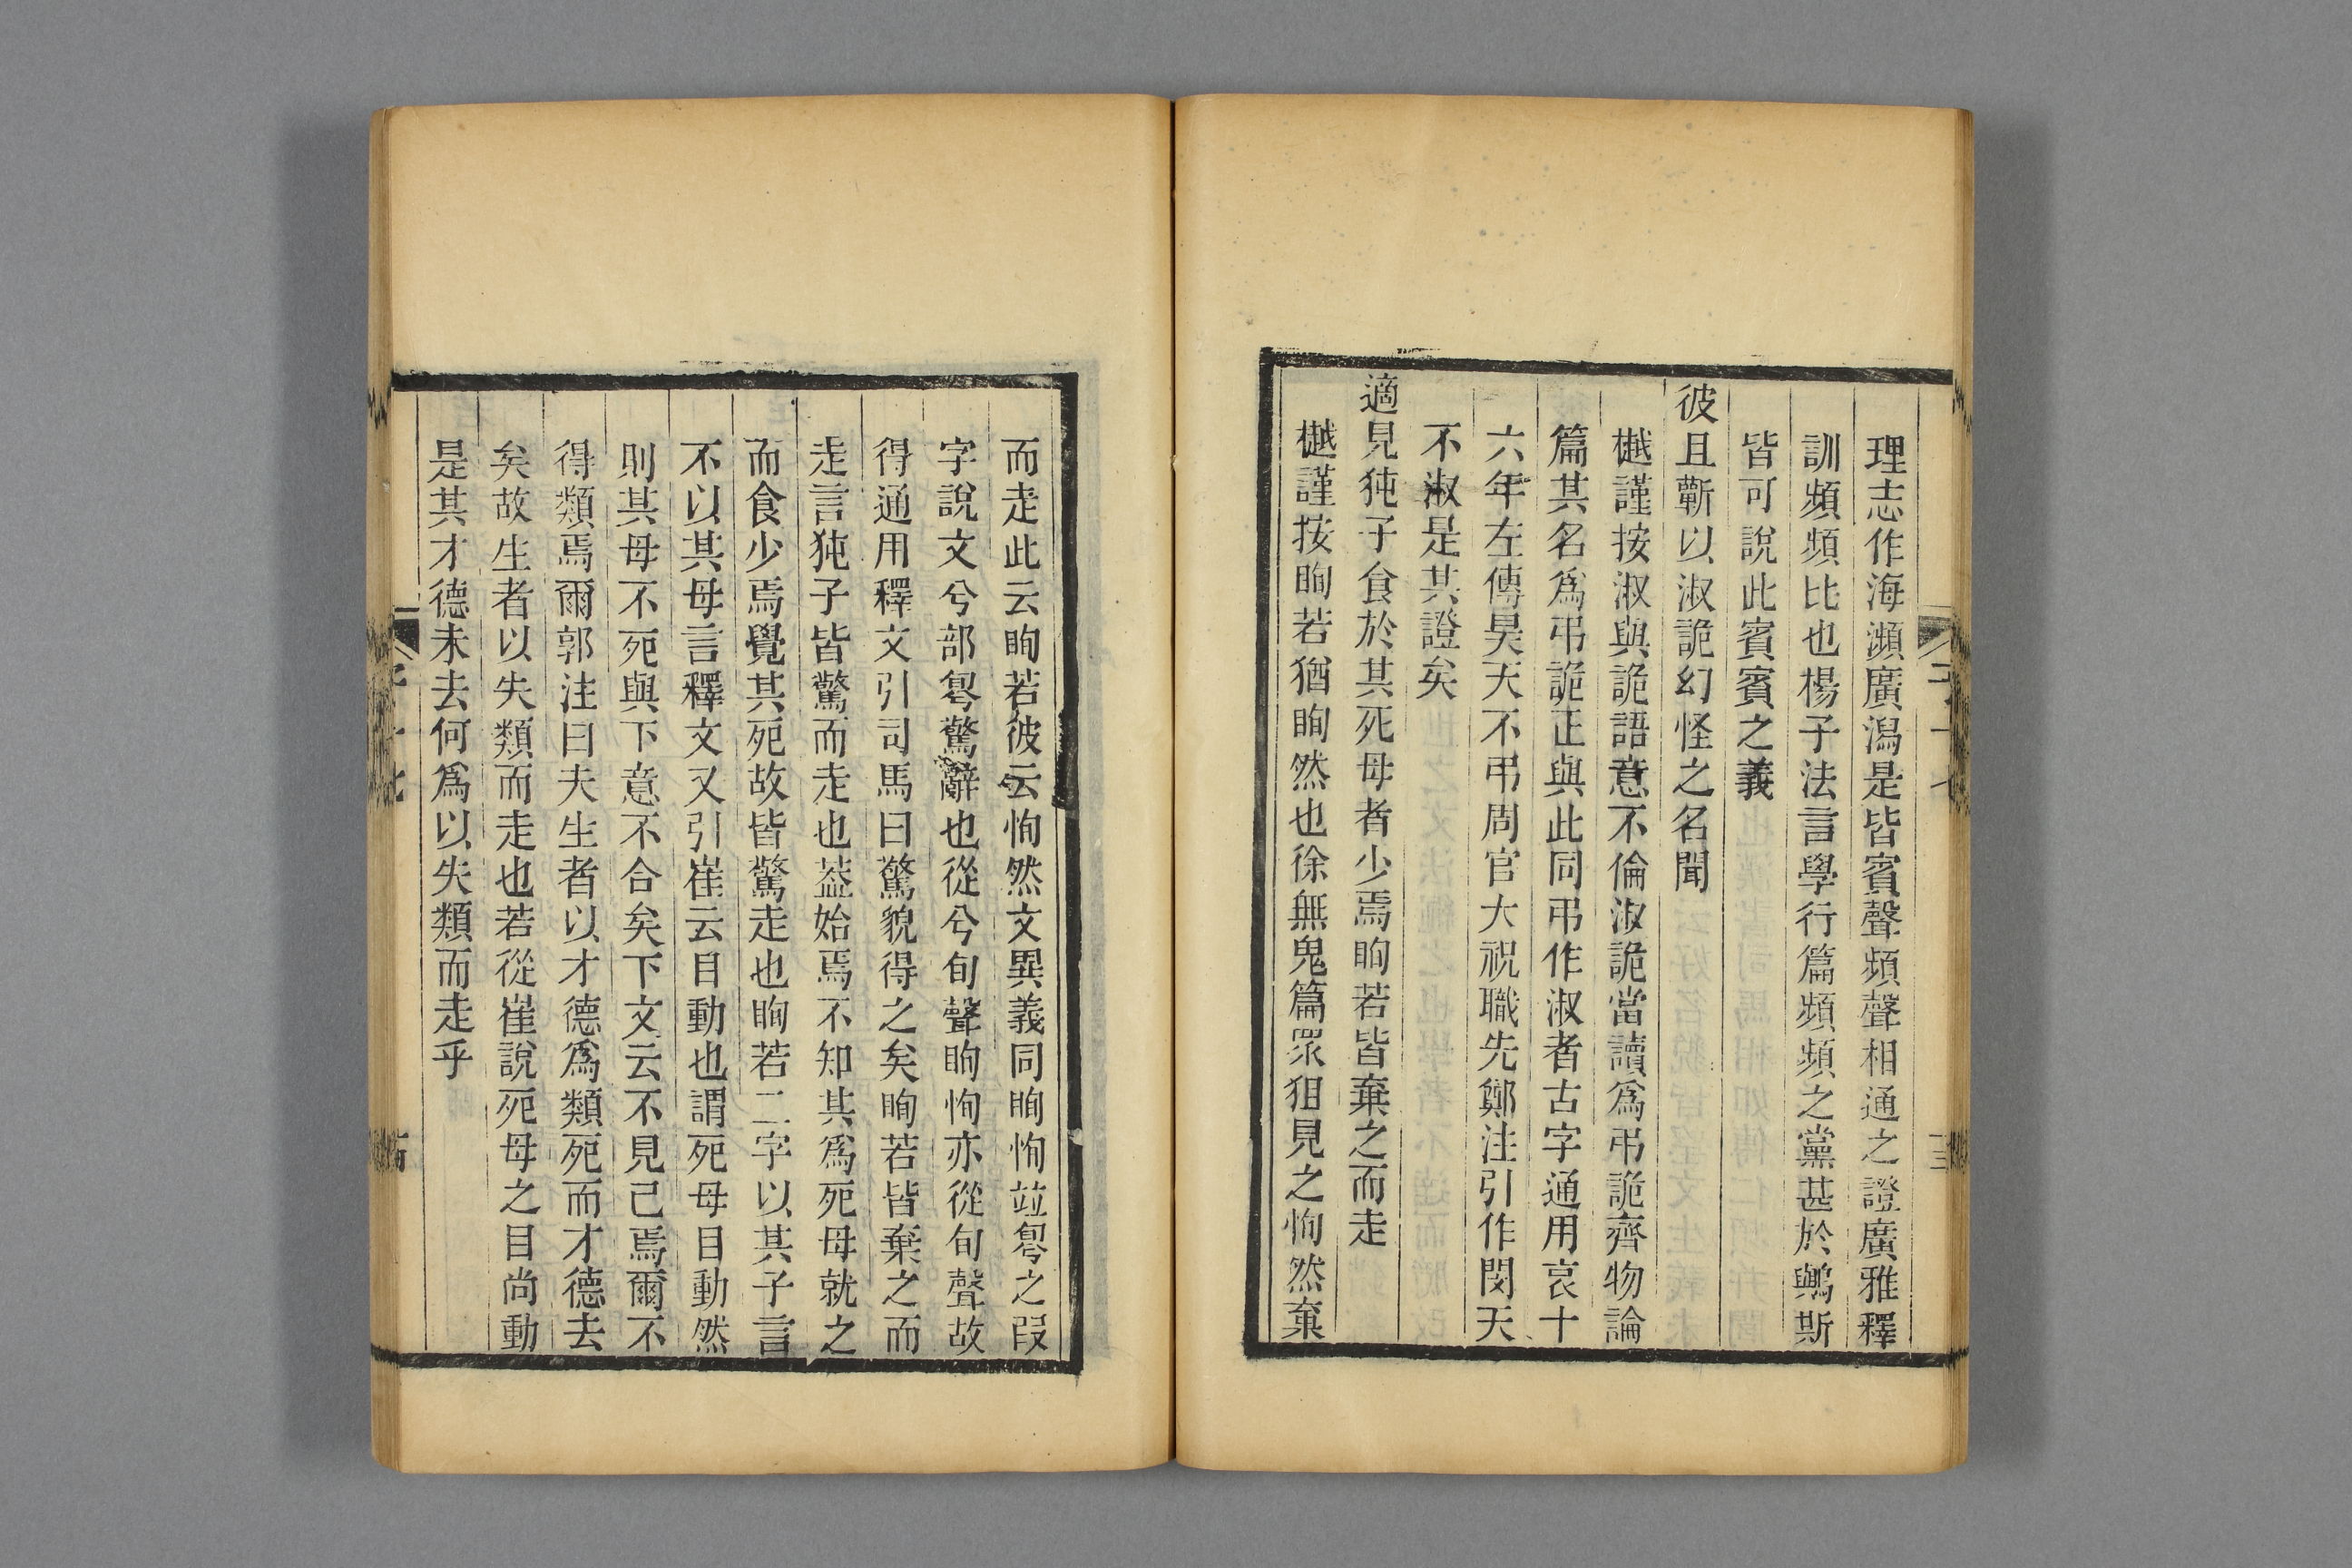 理志作海瀕廣潟是皆賓聲頻聲相通之證廣雅釋
訓頻頻比也楊子法言學行篇頻頻之黨甚於鸒斯
皆可說此賓賓之義
彼且蘄以淑詭幻怪之名聞
樾謹按淑與詭語意不倫淑詭當讀爲弔詭齊物論
篇其名爲弔詭正與此同弔作淑者古字通用哀十
六年左傳昊天不弔周官大祝職先鄭注引作閔天
不淑是其證矣
適見㹠子食於其死母者少焉眴若皆棄之而走
樾謹按眴若猶眴然也徐無鬼篇眾狙見之恂然棄
而走此云眴若彼云恂然文異義同眴恂竝㝁之叚
字說文兮部㝁驚辭也從兮旬聲眴恂亦從旬聲故
得通用釋文引司馬曰驚貌得之矣眴若皆棄之而
走言㹠子皆驚而走也葢始焉不知其爲死母就之
而食少焉覺其死故皆驚走也眴若二字以其子言
不以其母言釋文又引崔云目動也謂死母目動然
則其母不死與下意不合矣下文云不見己焉爾不
得類焉爾郭注曰夫生者以才德爲類死而才德去
矣故生者以失類而走也若從崔說死母之目尚動
是其才德未去何爲以失類而走乎